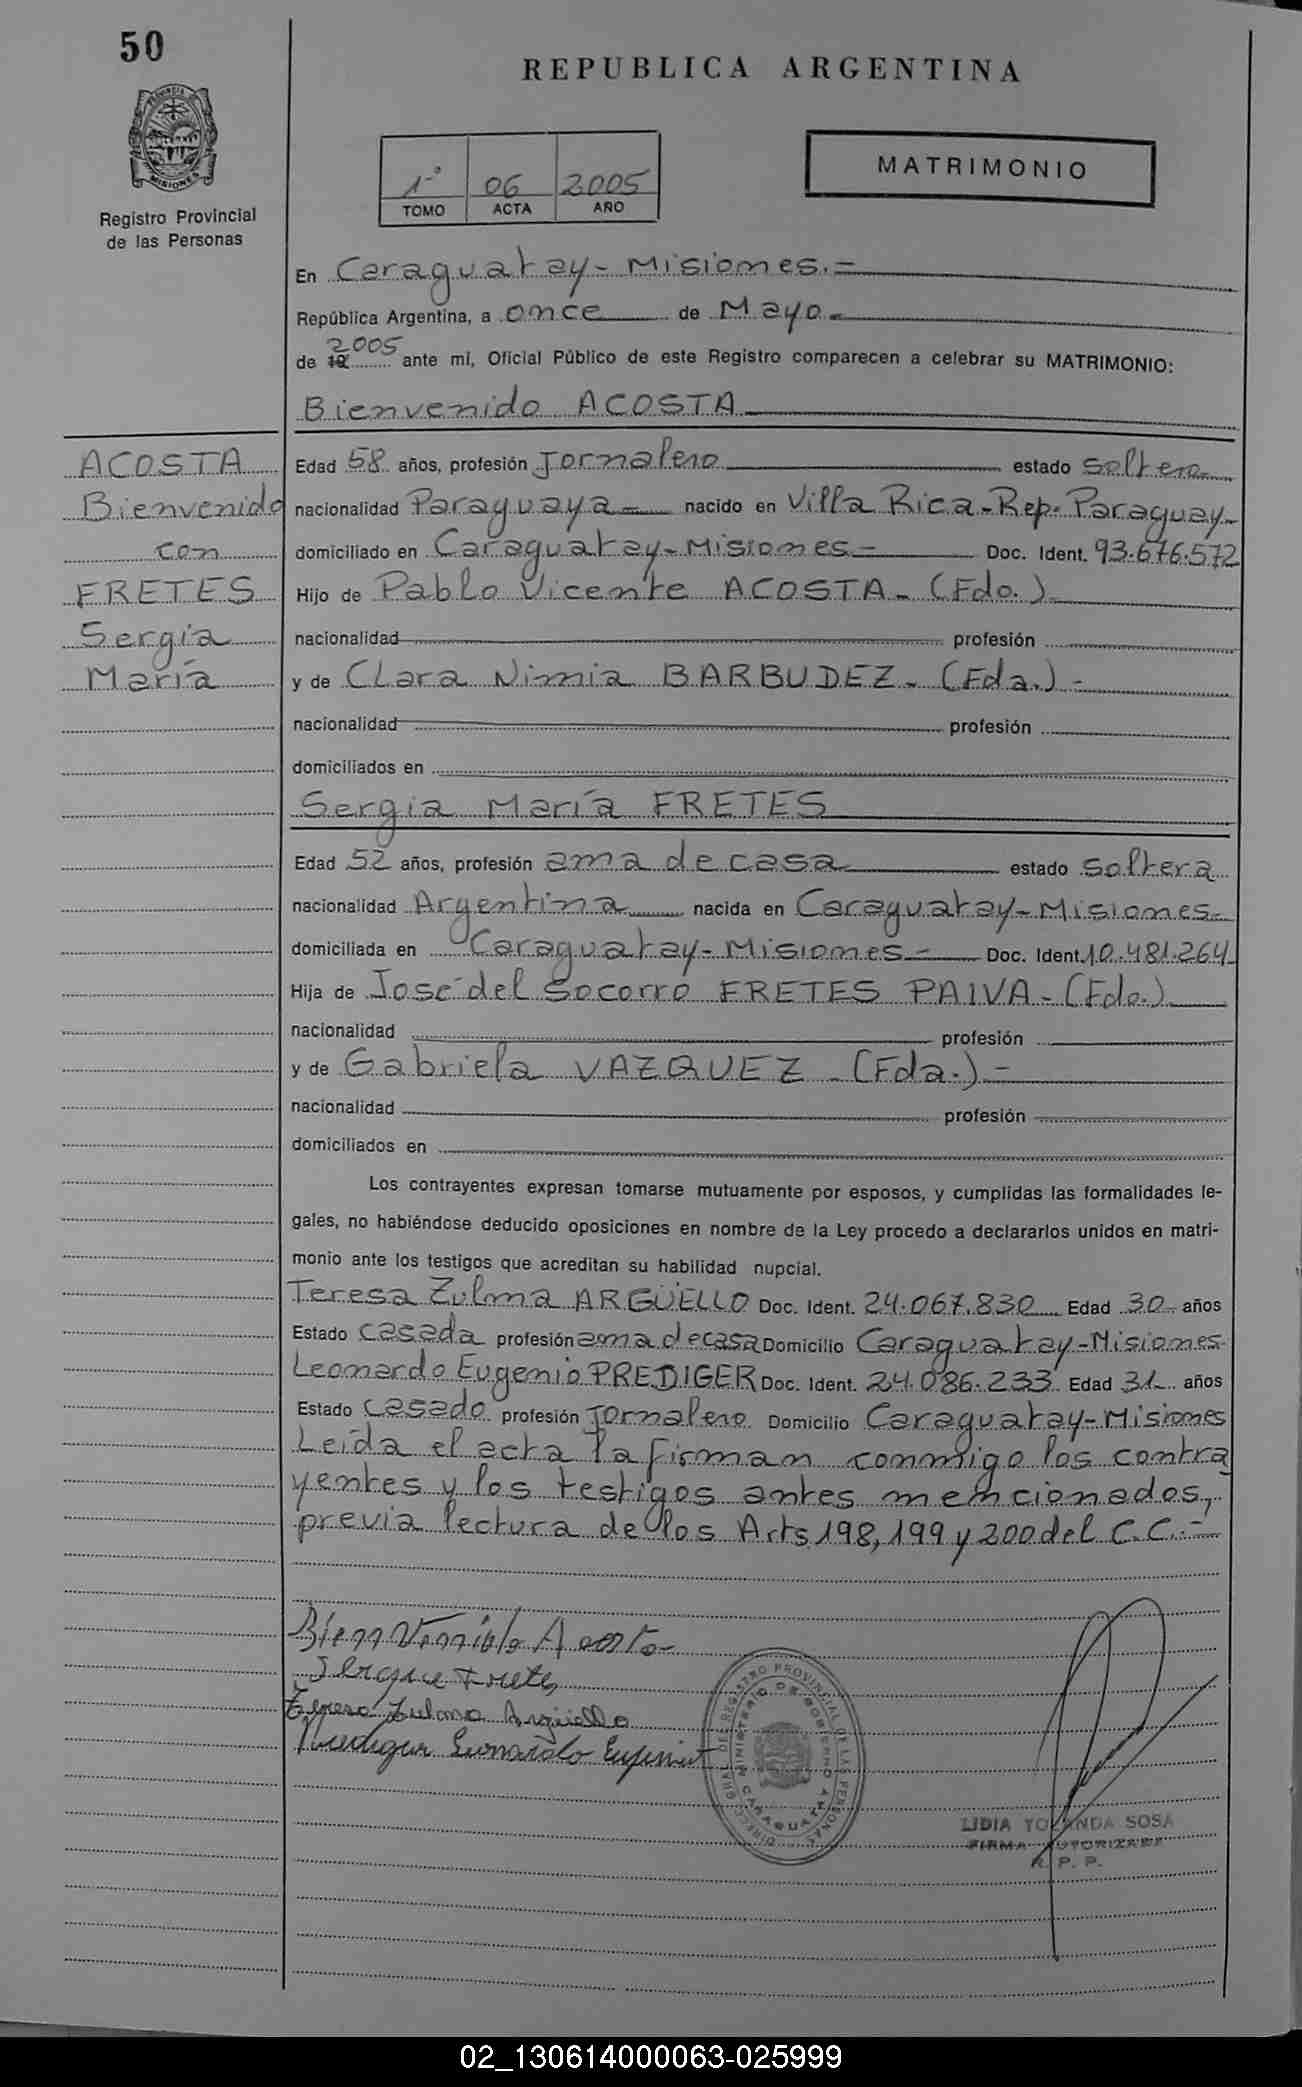 50
REPUBLICA ARGENTINA
PROVINCIA DE MISIONES
Registro Provincial
de las Personas
1º 06 2005
TOMO ACTA AÑO
MATRIMONIO
En Caraguatay - Misiones. =
República Argentina, a once de Mayo =
de 2005 ante mí, Oficial Público de este Registro comparecen a celebrar su MATRIMONIO:
Bienvenido ACOSTA
ACOSTA
Bienvenido
con
FRETES
Sergia
María
Edad 58 años, profesión Jornalero estado soltero
nacionalidad Paraguaya - nacido en Villa Rica - Rep. Paraguay -
domiciliado en Caraguatay - Misiones - Doc. Ident. 93.676.572
Hijo de Pablo Vicente ACOSTA - (Fdo.)
nacionalidad profesión
y de Clara Nimia BARBUDEZ - (Fda.) -
nacionalidad profesión
domiciliados en
Sergia María FRETES
Edad 52 años, profesión ama de casa estado soltera
nacionalidad Argentina nacida en Caraguatay - Misiones -
domiciliada en Caraguatay - Misiones - Doc. Ident. 10.481.264
Hija de José del Socorro FRETES PAIVA - (Fdo.)
nacionalidad profesión
y de Gabriela VAZQUEZ - (Fda.) -
nacionalidad profesión
domiciliados en
Los contrayentes expresan tomarse mutuamente por esposos, y cumplidas las formalidades le-
gales, no habiéndose deducido oposiciones en nombre de la Ley procedo a declararlos unidos en matri-
monio ante los testigos que acreditan su habilidad nupcial.
Teresa Zulma ARGÜELLO Doc. Ident. 24.067.830 Edad 30 años
Estado casada profesión ama de casa Domicilio Caraguatay - Misiones
Leonardo Eugenio PREDIGER Doc. Ident. 24.086.233 Edad 31 años
Estado casado profesión Jornalero Domicilio Caraguatay - Misiones
Leída el acta la firman conmigo los contra
yentes y los testigos antes mencionados,
previa lectura de los Arts 198, 199 y 200 del C.C. -
Bienvenido Acosta
Fretes
Teresa Zulma Argüello
Prediger Leonardo Eugenio
DIRECC. GRAL. DEL REGISTRO PROVINCIAL DE LAS PERSONAS
MINISTERIO DE GOBIERNO
CARAGUATAY
LIDIA YOLANDA SOSA
FIRMA AUTORIZADA
R. P. P.
02_130614000063-025999